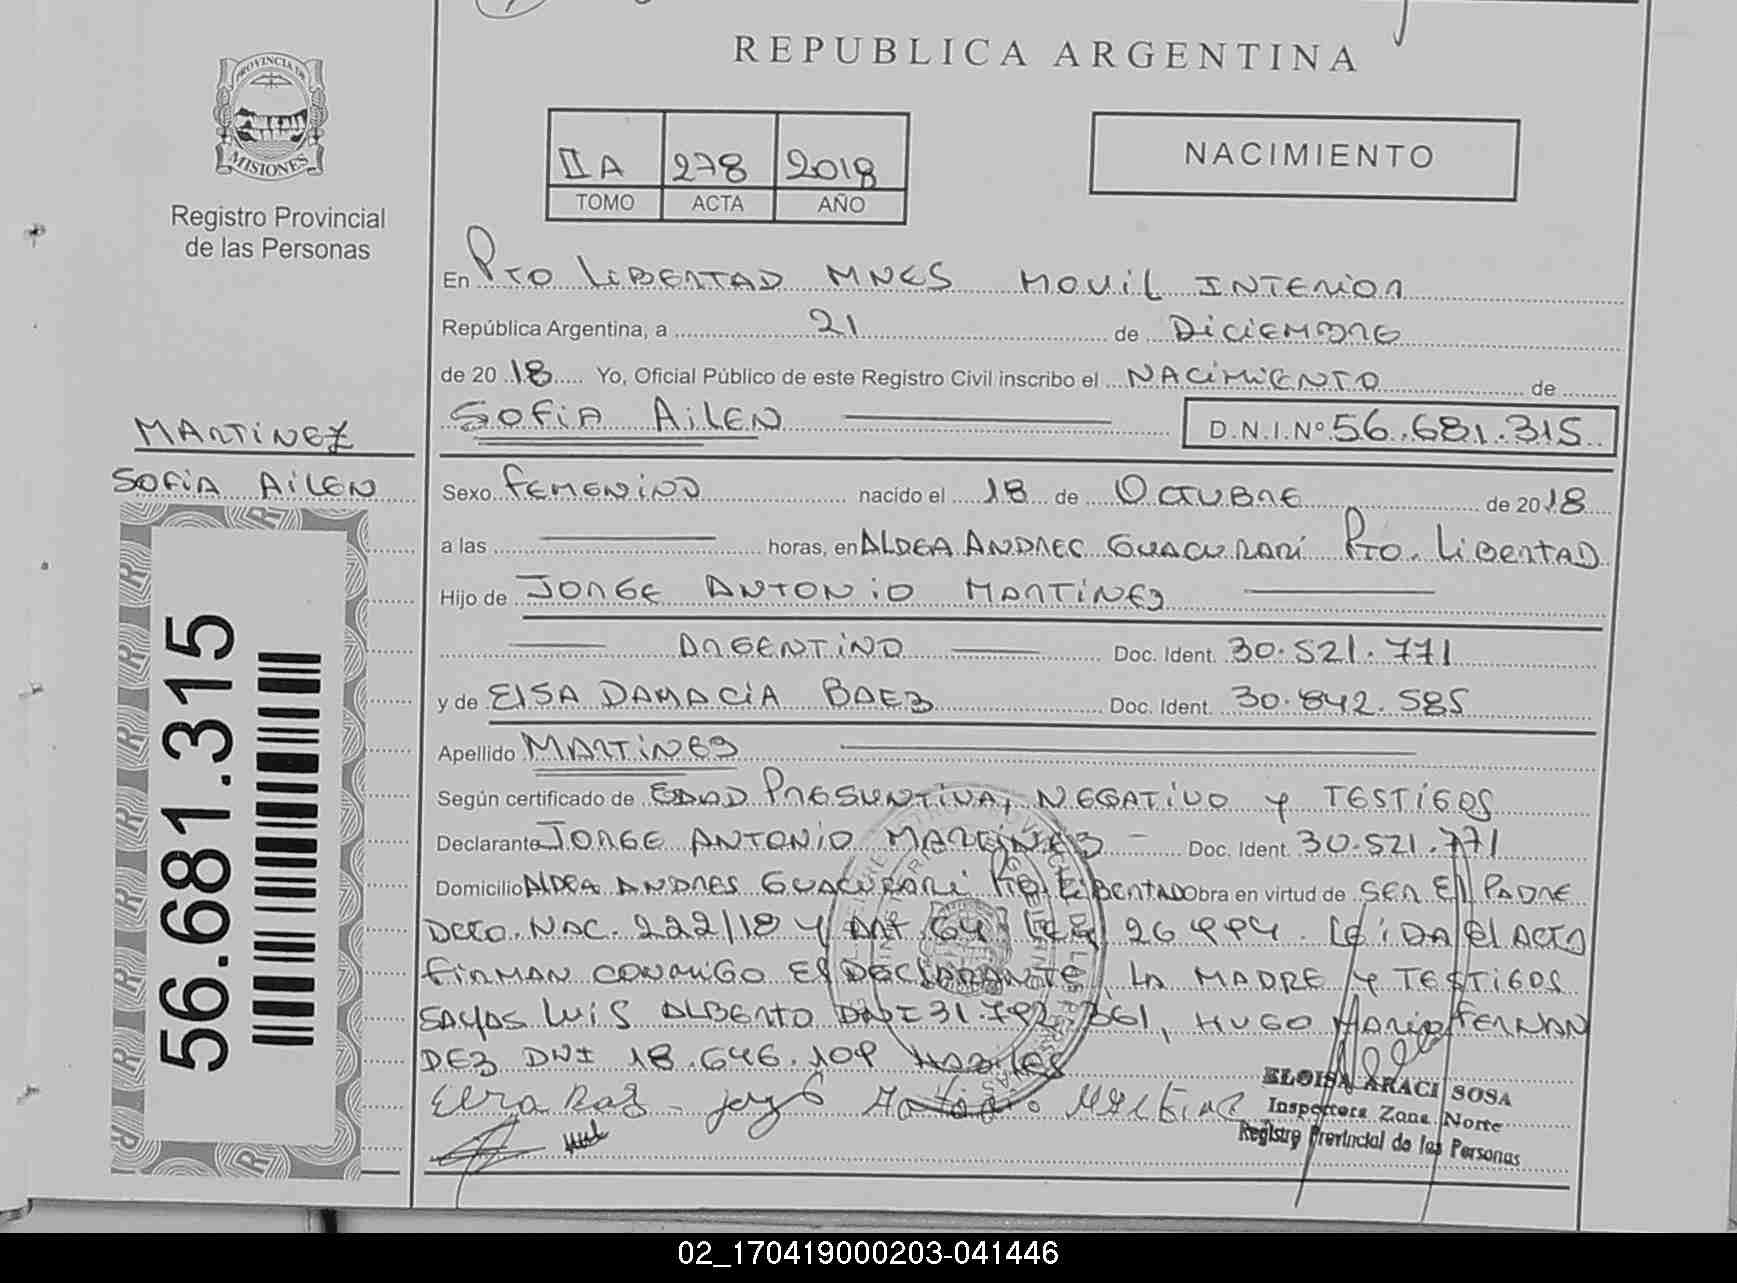 REPUBLICA ARGENTINA
PROVINCIA DE
MISIONES
Registro Provincial
de las Personas
II A 278 2018
TOMO ACTA AÑO
NACIMIENTO
En Pto LIBERTAD MNES MOVIL INTERIOR
República Argentina, a 21 de DICIEMBRE
de 20 18 Yo, Oficial Público de este Registro Civil inscribo el NACIMIENTO de
SOFIA AILEN D.N.I.Nº 56.681.315
MARTINEZ
SOFIA AILEN
56.681.315
Sexo FEMENINO nacido el 18 de OCTUBRE de 20 18
a las horas, en ALDEA ANDRES GUACURARI Pto. LIBERTAD
Hijo de JORGE ANTONIO MARTINEZ
ARGENTINO Doc. Ident. 30.521.771
y de ELSA DAMACIA BAEZ Doc. Ident. 30.842.585
Apellido MARTINEZ
Según certificado de EDAD PRESUNTIVA, NEGATIVO y TESTIGOS
Declarante JORGE ANTONIO MARTINEZ - Doc. Ident. 30.521.771
Domicilio ALDEA ANDRES GUACURARI Pto LIBERTAD Obra en virtud de SER EL PADRE
DCTO. NAC. 222/18 Y ART 64 LEY 26994. LEIDA EL ACTA
FIRMAN CONMIGO EL DECLARANTE, LA MADRE Y TESTIGOS
SAYAS LUIS ALBERTO DNI 31.792.361, HUGO MARIO FERNAN
DEZ DNI 18.646.109 HABILES
Jorge Antonio Martinez
ELOISA ARACI SOSA
Inspectora Zona Norte
Registro Provincial de las Personas
02_170419000203-041446